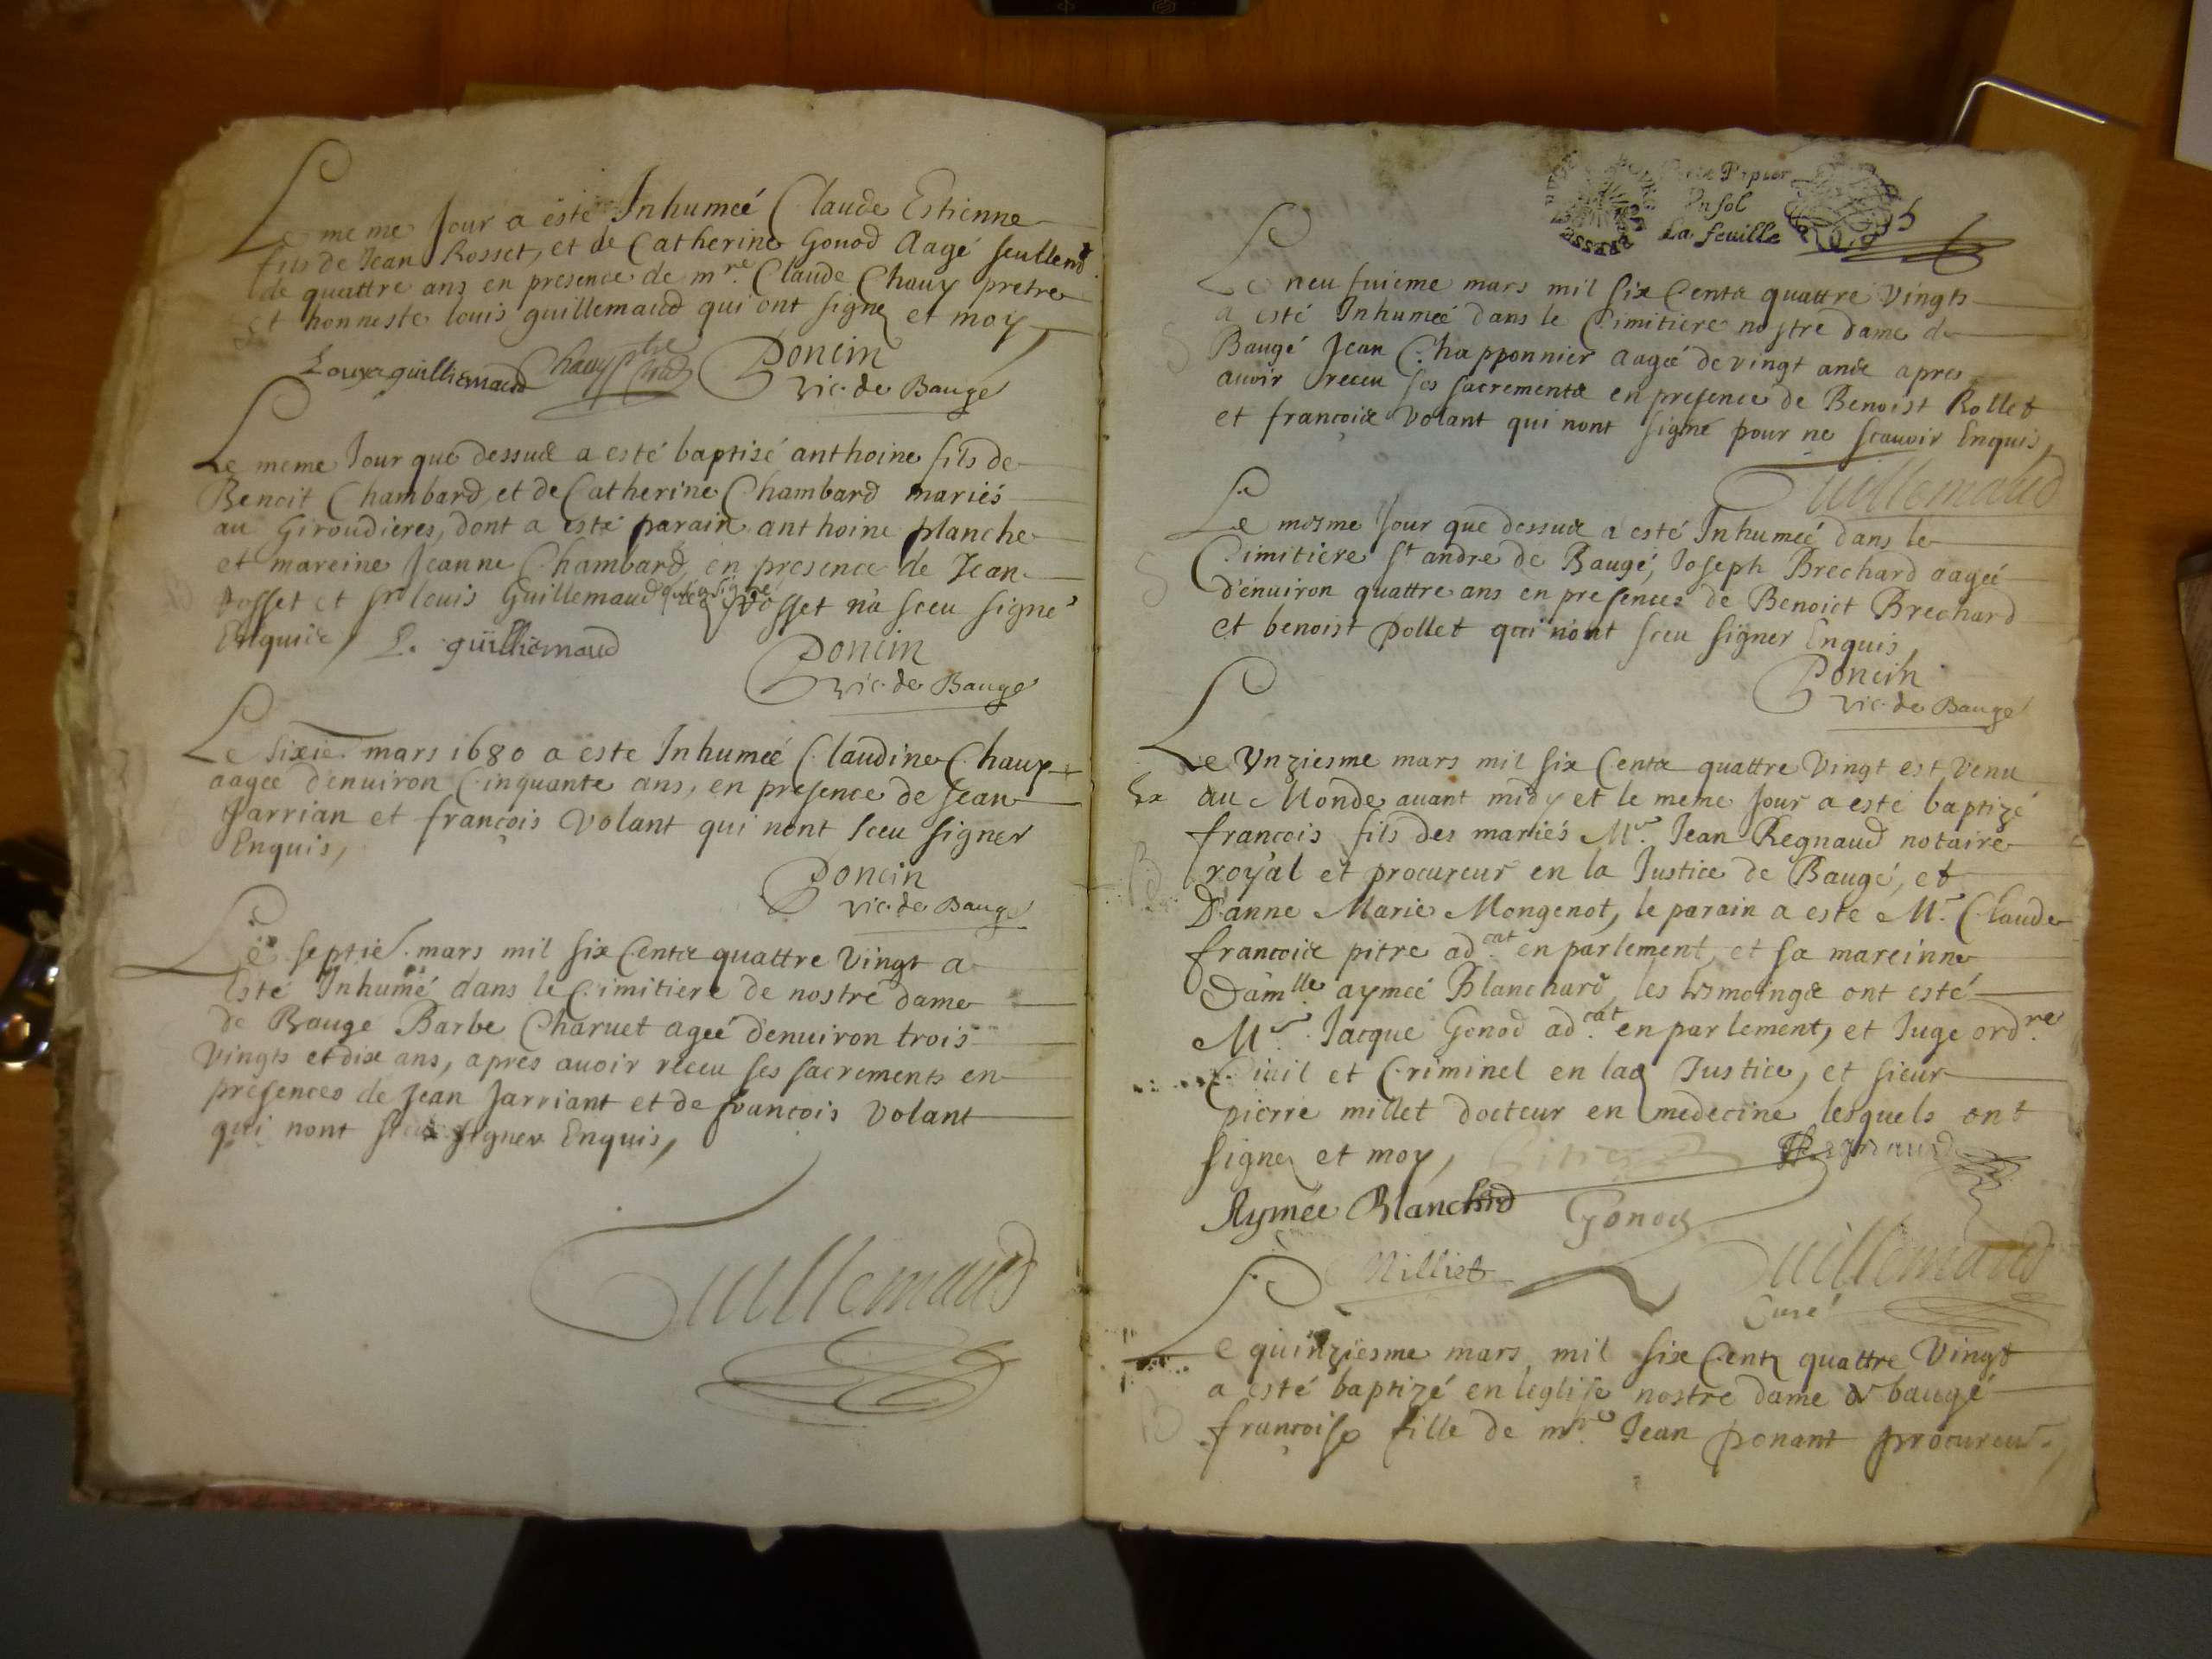 Le meme Jour a esté Inhumeé Claude Estienne
fils de Jean Rosset, et de Catherine Gonod Aagé seullemt
de quattre ans en presence de mre. Claude Chaux pretre
et honneste louis guillemaud qui ont signé et moy
Louys guilliemaud Chaux ptre Poncin
vic. de Baugé
Le meme Jour que dessus a esté baptisé anthoine fils de
Benoit Chambard, et de Catherine Chambard mariés
au Giroudieres, dont a esté parain anthoine planche
et mareine Jeanne Chambard, en presence de Jean
Posset et sr louis Guillemaud qui a signé Posset n'a sceu signé
Enquis, L. guilliemaud
Poncin
vic. de Baugé
Le sixie. mars 1680 a este Inhumeé Claudine Chaux
aageé d'enuiron Cinquante ans, en presence de Jean
Jarrian et françois Volant qui nont sceu signer
Enquis,
Poncin
vic. de Baugé
Le septie. mars mil six Cents quattre Vingt a
Esté Inhumé dans le Cimitiere de nostre dame
de Baugé Barbe Charuet ageé d'enuiron trois
Vingts et dix ans, apres auoir receu ses sacrements en
presences de Jean Jarriant et de francois Volant
qui nont sceu signer Enquis,
Guillemaud
Petit Papier
Un sol
La feuille
5
Le neufuieme mars mil six Cents quattre Vingts
a esté Inhumeé dans le Cimitiere nostre dame de
Baugé Jean Chapponnier aageé de vingt ans apres
auoir receu ses sacrements en presence de Benoist Rollet
et françois Volant qui nont signé pour ne scauoir Enquis,
Guillemaud
Le mesme Jour que dessus a esté Inhumeé dans le
Cimitiere St andre de Baugé, Joseph Brechard aageé
d'enuiron quattre ans en presences de Benoict Brechard
et benoist pollet qui n'ont sceu signer Enquis
Poncin
vic. de Baugé
Le Vnziesme mars mil six Cents quattre Vingt est Venu
au Monde auant midy et le meme Jour a esté baptizé
francois fils des mariés Mr. Jean Regnaud notaire
royal et procureur en la Justice de Baugé, et
D'anne Marie Mongenot, le parain a este Mr. Claude
francois pitre adcat. en parlement, et sa mareinne
Damlle aymeé Blanchard, les tesmoings ont esté
Mr. Jacque Gonod adcat. en parlement, et Juge ordre.
Ciuil et Criminel en lad Justice, et sieur
pierre millet docteur en medecine lesquels ont
signé et moy, Pitre Regnaud
Aymée Blanchard Gonod
Milliet Guillemaud
Curé
Le quinziesme mars mil six Cents quattre Vingt
a esté baptizé en leglise nostre dame de baugé
françoise fille de mre. Jean ponant procureur,